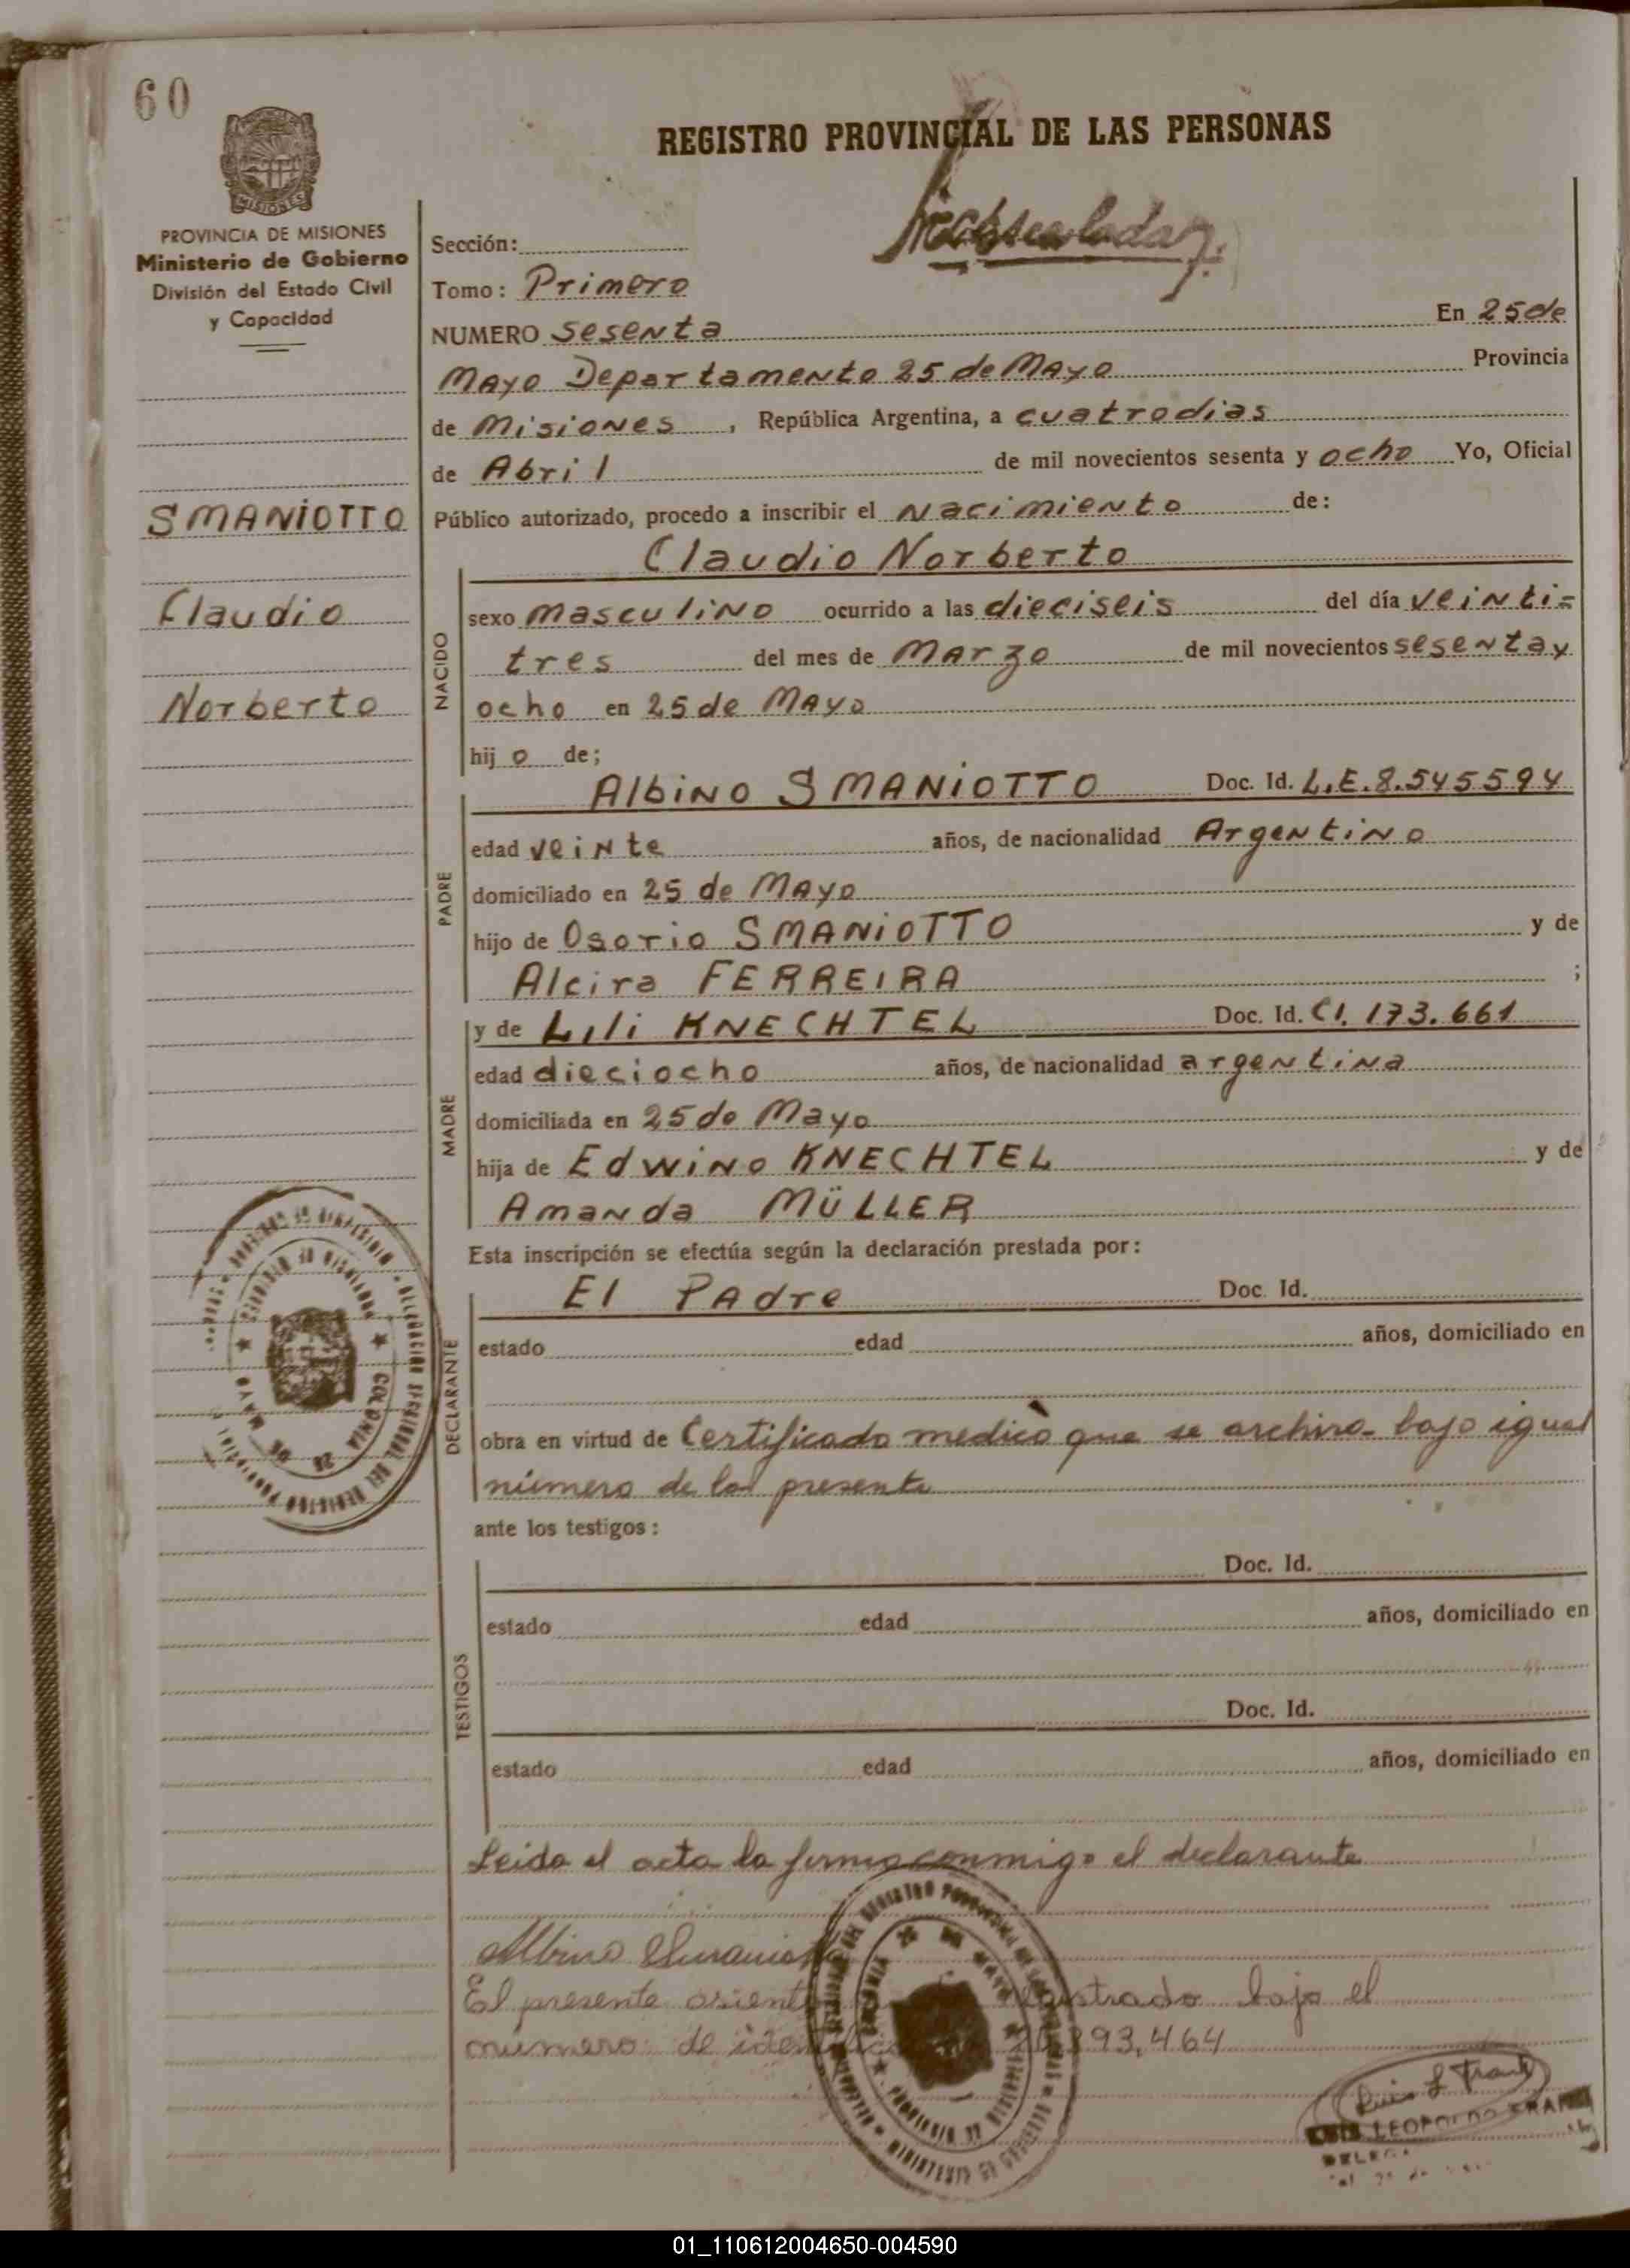 60
REGISTRO PROVINCIAL DE LAS PERSONAS
MISIONES
PROVINCIA DE MISIONES
Ministerio de Gobierno
División del Estado Civil
y Capacidad
SMANIOTTO
Claudio
Norberto
Sección:
Tomo: Primero
NUMERO sesenta En 25 de
Mayo Departamento 25 de Mayo Provincia
de Misiones, República Argentina, a cuatro dias
de Abril de mil novecientos sesenta y ocho Yo, Oficial
Público autorizado, procedo a inscribir el Nacimiento de:
Claudio Norberto
NACIDO
sexo masculino ocurrido a las dieciseis del día veinti=
tres del mes de Marzo de mil novecientos sesenta y
ocho en 25 de Mayo
hijo de;
PADRE
Albino SMANIOTTO Doc. Id. L.E. 8.545594
edad veinte años, de nacionalidad Argentino
domiciliado en 25 de Mayo
hijo de Osorio SMANIOTTO y de
Alcira FERREIRA ;
MADRE
y de Lili KNECHTEL Doc. Id. CI. 173.661
edad dieciocho años, de nacionalidad argentina
domiciliada en 25 de Mayo
hija de Edwino KNECHTEL y de
Amanda MÜLLER
Esta inscripción se efectúa según la declaración prestada por:
DECLARANTE
El Padre Doc. Id.
estado edad años, domiciliado en
obra en virtud de Certificado medico que se archiva bajo igual
número de la presente
ante los testigos:
TESTIGOS
Doc. Id.
estado edad años, domiciliado en
Doc. Id.
estado edad años, domiciliado en
Leida el acta la firma conmigo el declarante
Albino
El presente bajo el
número de 93,464
Luis L Frank
LEOPOLDO
01_110612004650-004590